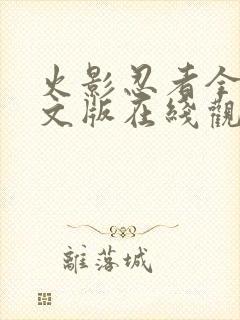 火影忍者全
文版在綫觀
離落城